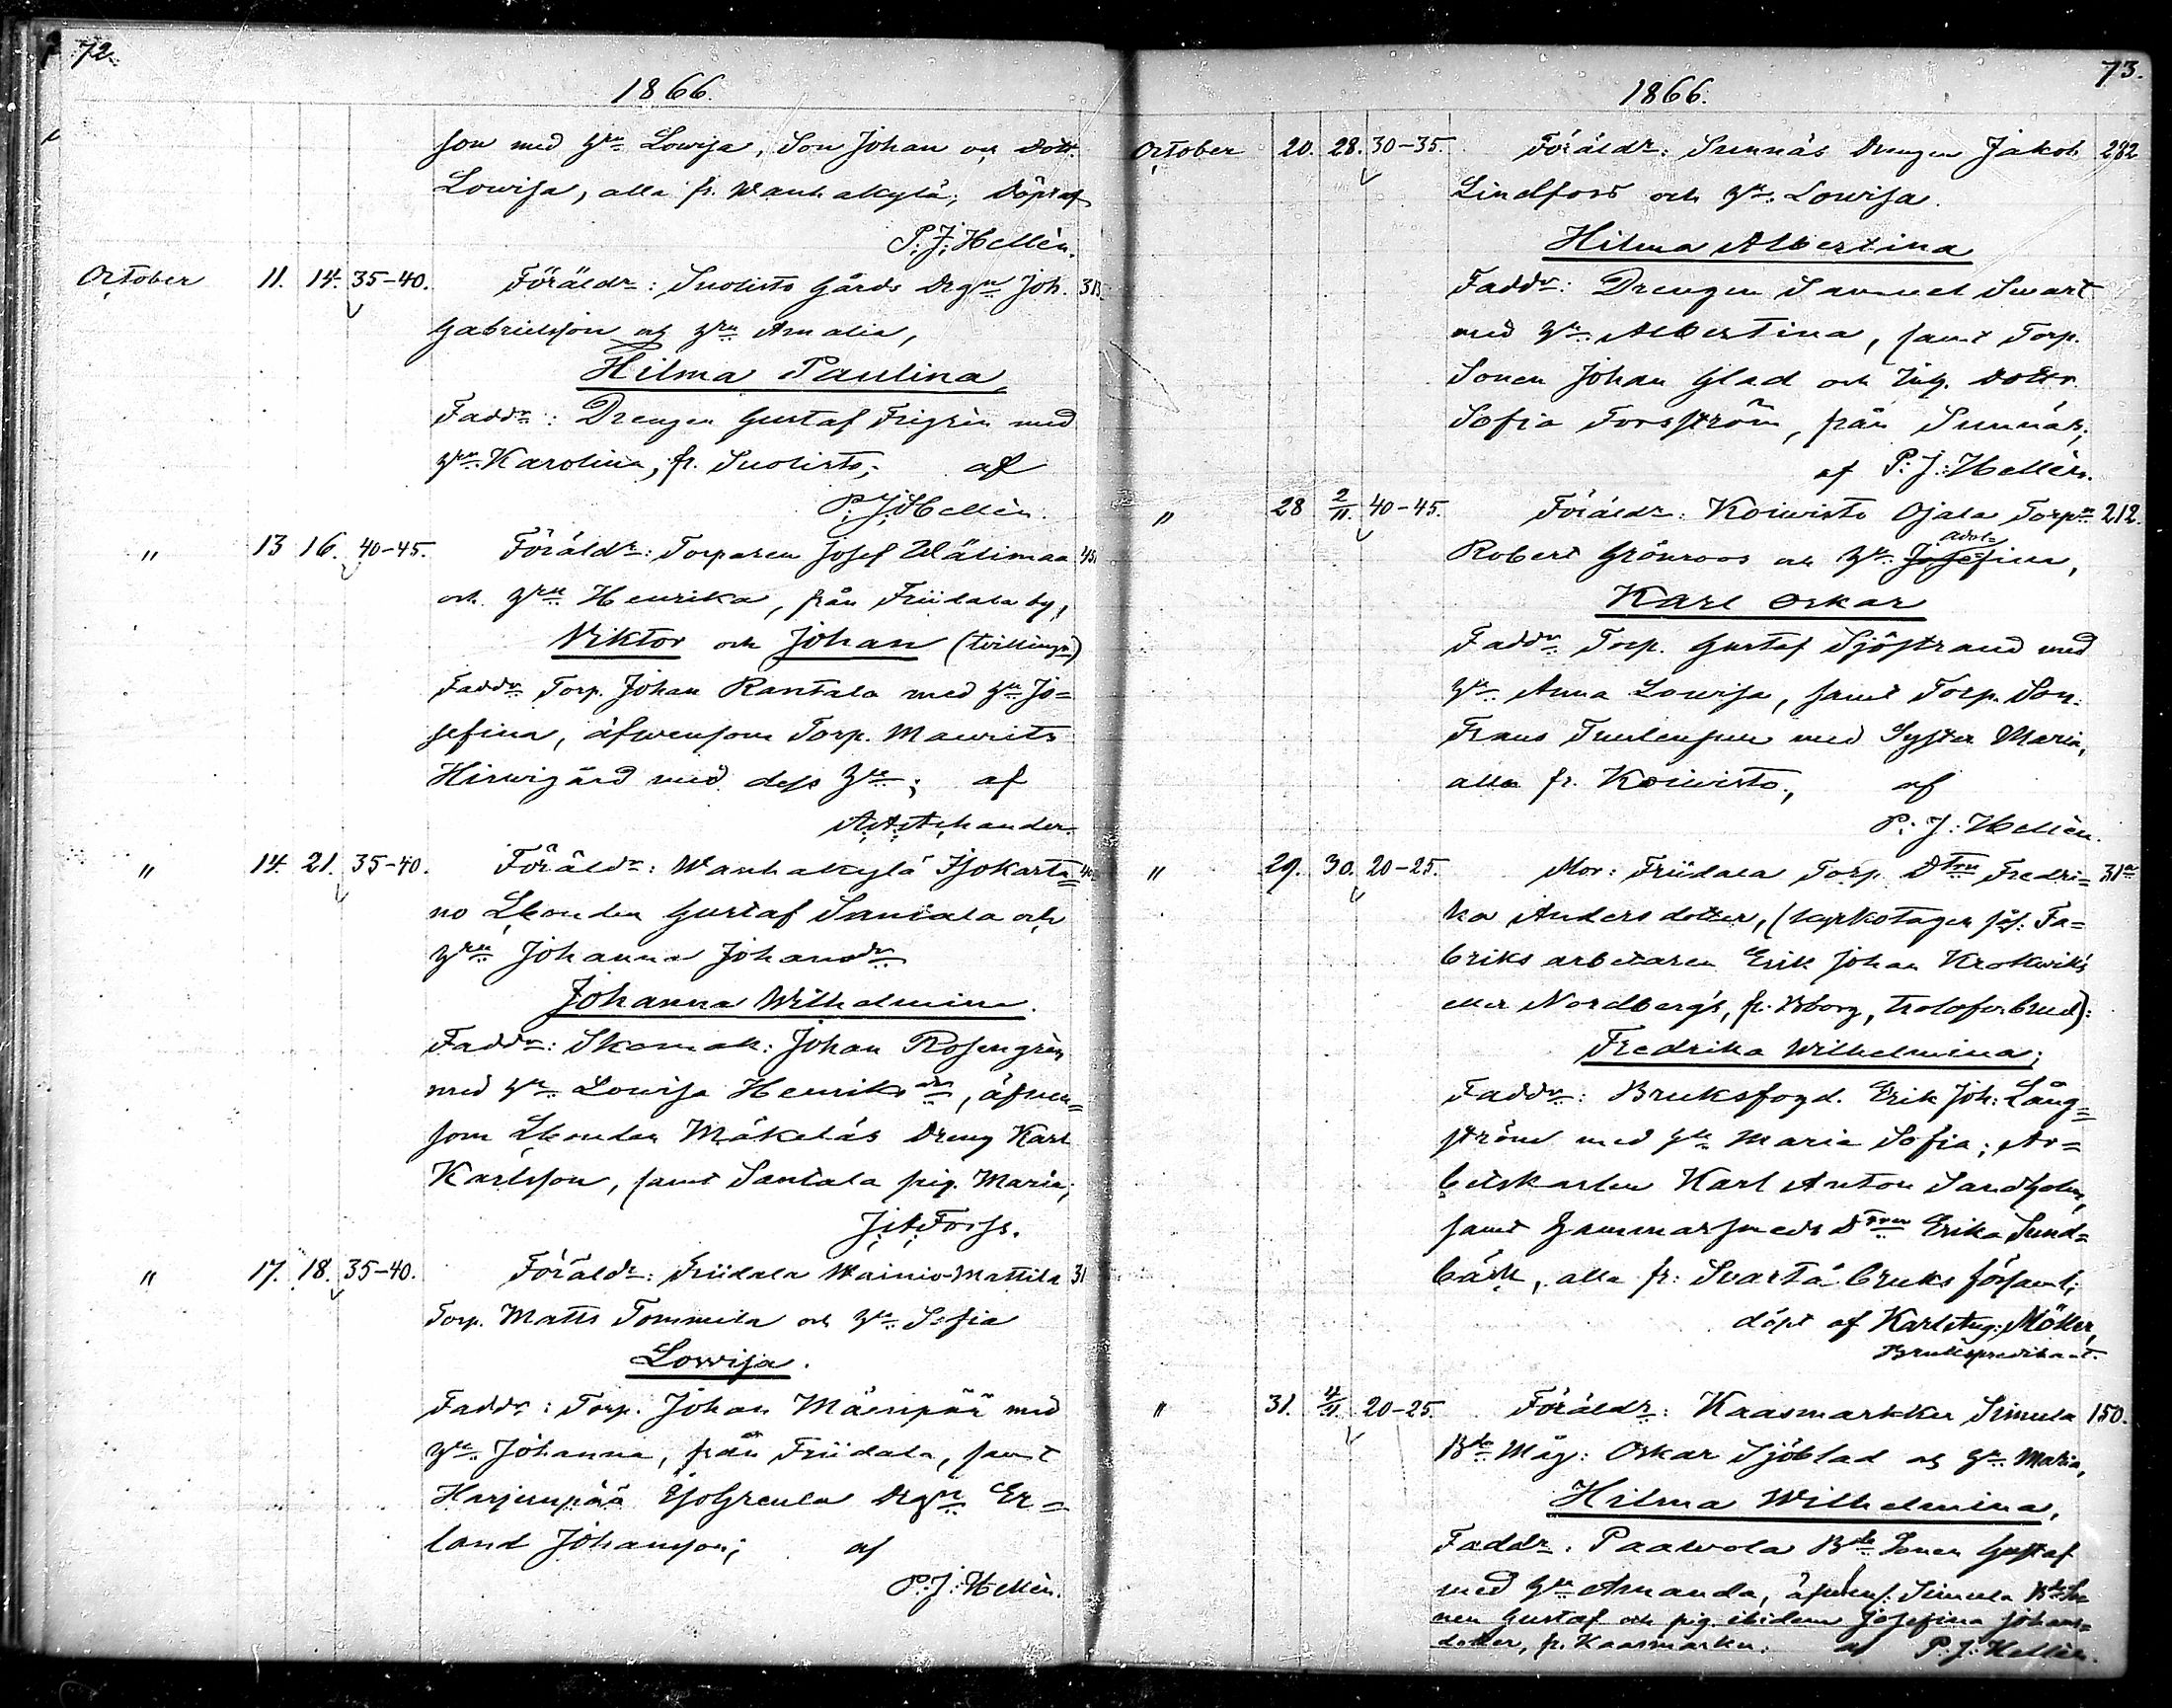 72.
1866.
son med Hru Lowisa, Son Johan och Dott.
Lowisa, alla fr. Wanhakylä; Döpt af
P. J. Hellén.
October 11. 14. 35-40. Föräldr: Suolisto Gårds Drgn Joh. 313.
Gabrielsson och Hru Amalia,
Hilma Paulina,
Faddr: Drengen Gustaf Frigrén med
Hru Karolina, fr. Suolisto; af
P. J. Hellén.
" 13 16. 40-45. Föräldr: Torparen Josef Wälimaa
och Hru Henrika, från Friidala by,
Viktor och Johan (tvillingr)
Faddr Torp. Johan Rantala med Hru Jo=
sefina, äfwensom Torp. Maurits
Hirwigård med dess Hru; af
" 14. 21. 35-40. Föräldr: Wanhakylä Isokarta=
no Lbonden Gustaf Santala och
Hru Johanna Johansdr
Johanna Wilhelmina.
Faddr: Skomak: Johan Rosengrén
med Hru Lowisa Henriksdr, äfwen=
som Lbonden Mäkeläs Dreng Karl
Karlsson, samt Santala pig. Maria;
J. A. Forss.
" 17. 18. 35-40. Föräldr: Friidala Wainio-Mattila 31
Torp. Matts Tommila och Hru Sofia
Lowisa.
Faddr: Torp. Johan Mäenpää med
Hru Johanna, från Friidala, samt
Harjunpää Drgn Er=
land Johansson; af
P. J. Hellén.
73.
1866.
October 20. 28. 30-35. Föräldr: Sunnäs Drengen Jakob 282
Lindfors och Hru Lowisa.
Hilma Albertina
Faddr: Drengen Samuel Swart
med Hru Albertina, samt Torp.
Sonen Johan Glad och Inh. Dottr.
Sofia Forsström, från Sunnäs;
af P. J. Hellén.
" 28 2/11. 40-45. Föräldr: Koiwisto Ojala Torpn 212.
Robert Grönroos och Hru Josefina,
Karl Oskar
Faddr Torp. Gustaf Sjöstrand med
Hru Anna Lowisa, samt Torp. Son.
Frans med Syster Maria,
alla fr. Koiwisto; af
P. J. Hellén.
" 29. 30. 20-25. Mor: Friidala Torp. Dtrn Fredri=
ka Andersdotter, (kyrkotagen såss. Fa=
briksarbetaren Erik Johan Krokwiks
eller Nordbergs, fr. Bborg, trolofw. brud):
Fredrika Wilhelmina;
Faddr: Bruksfogd. Erik Joh: Lång=
ström med Hru Maria Sofia; Ar=
betskarlen Karl Anton Sandholm,
samt Hammarsmeds Dtrn Erika Sund=
bäck, alla fr: Svartå Bruks församl;
döpt af Karl Aug: Möller,
Brukspredikant.
" 31. 4/11. 20-25. Föräldr: Kaasmarkku Simula 150.
Bde Måg: Oskar Sjöblad och Hru Maria,
Hilma Wilhelmina,
Faddr. Paawola Bde Sonen Gustaf
med Hru Amanda, äfwens. Simula Bde So
nen Gustaf och pig. ibidem Josefina Johans=
dotter, fr. Kaasmarku; af P. J. Hellén.